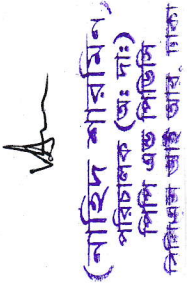 (নাহিদ শারমিন)
পরিচালক (অঃ দাঃ)
পিপি এন্ড পিডিসি
পিসিএস আই আর, ঢাকা